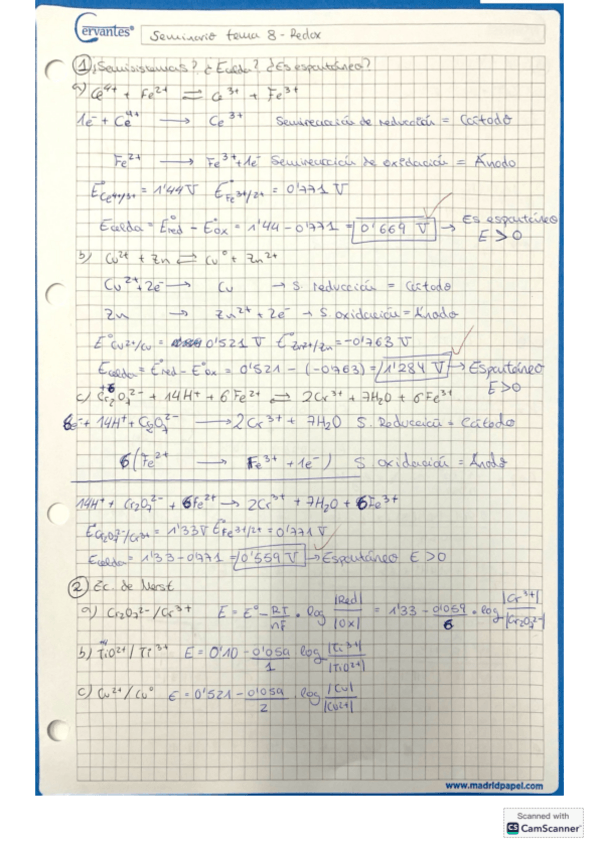 Cervantes®
Seminario tema 8 - Redox
① ¿Semisistemas? ¿Ecelda? ¿Es espontáneo?
a) Ce⁴⁺ + Fe²⁺ ⇌ Ce³⁺ + Fe³⁺
1e⁻ + Ce⁴⁺ → Ce³⁺ Semireacción de reducción = Cátodo
Fe²⁺ → Fe³⁺ + 1e⁻ Semireacción de oxidación = Ánodo
E°Ce⁴⁺/³⁺ = 1'44 V E°Fe³⁺/²⁺ = 0'771 V
Ecelda = E°red - E°ox = 1'44 - 0'771 = 0'669 V → Es espontáneo
E > 0
b) Cu²⁺ + Zn ⇌ Cu° + Zn²⁺
Cu²⁺ + 2e⁻ → Cu → S. reducción = Cátodo
Zn → Zn²⁺ + 2e⁻ → S. oxidación = Ánodo
E°Cu²⁺/Cu = 0'521 V E°Zn²⁺/Zn = -0'763 V
Ecelda = E°red - E°ox = 0'521 - (-0'763) = 1'284 V → Espontáneo
E > 0
+6
c) Cr₂O₇²⁻ + 14H⁺ + 6Fe²⁺ ⇌ 2Cr³⁺ + 7H₂O + 6Fe³⁺
6e⁻ + 14H⁺ + Cr₂O₇²⁻ → 2Cr³⁺ + 7H₂O S. Reducción = Cátodo
6(Fe²⁺ → Fe³⁺ + 1e⁻) S. oxidación = Ánodo
14H⁺ + Cr₂O₇²⁻ + 6Fe²⁺ → 2Cr³⁺ + 7H₂O + 6Fe³⁺
E°Cr₂O₇²⁻/Cr³⁺ = 1'33 V E°Fe³⁺/²⁺ = 0'771 V
Ecelda = 1'33 - 0'771 = 0'559 V → Espontáneo E > 0
② Ec. de Nerst
a) Cr₂O₇²⁻/Cr³⁺ E = E° - RT/nF · log |Red|/|Ox| = 1'33 - 0'059/6 · log |Cr³⁺|/|Cr₂O₇²⁻|
b) TiO²⁺/Ti³⁺ E = 0'10 - 0'059/1 log |Ti³⁺|/|TiO²⁺|
c) Cu²⁺/Cu° E = 0'521 - 0'059/2 · log |Cu|/|Cu²⁺|
www.madridpapel.com
Scanned with
CS CamScanner